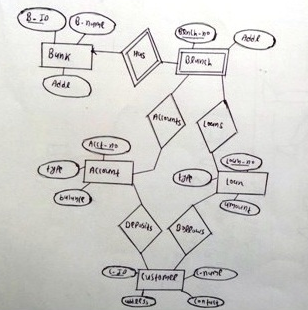 B-ID
B-name
Bank
Addr
Has
Bench-no
Addr
Branch
Accounts
Loans
Acct-no
type
Account
balance
Loan-no
type
Loan
amount
Deposits
Borrows
C-ID
Customer
C-name
address
Contact